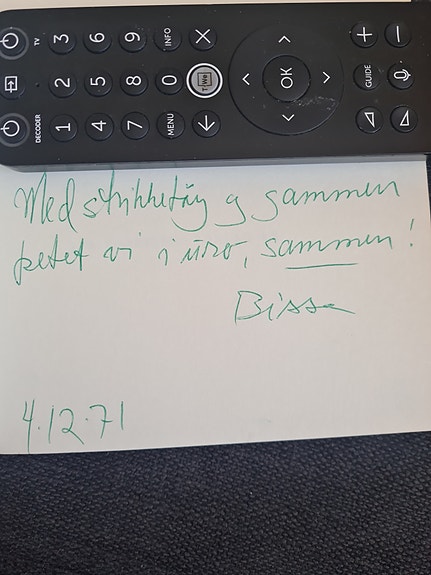 TV 3 6 9 INFO
2 5 8 0 TWe OK GUIDE
DECODER 1 4 7 MENU
Med strikketøy sammen
vi i uro, sammen!
Bissa
4.12.71